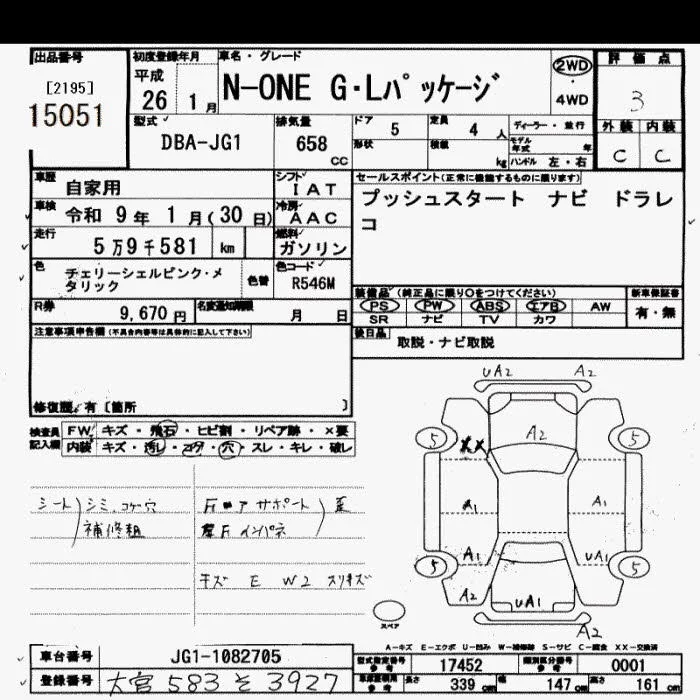 出品番号 初度登録年月 車名・グレード 評価点
[2195] 平成 N-ONE G・Lパッケージ 2WD 3
15051 26 1月 4WD
型式 排気量 ドア 5 定員 4人 ディーラー・並行 外装 内装
DBA-JG1 658 cc 形状 積載 kg モデル年式 年 ハンドル 左・右 C C
車歴 自家用 シフト IAT セールスポイント(正常に機能するものに限ります)
車検 令和 9年 1月(30日) 冷房 AAC プッシュスタート ナビ ドラレ
コ
走行 5万9千581 km 燃料 ガソリン
色 チェリーシェルピンク・メ
タリック 色替 色コード R546M
装備品(純正品に限り○をつけてください) 新車保証書
R券 9,670円 名変通知期限 月 日 PS PW ABS エアB AW 有・無
SR ナビ TV カワ
注意事項申告欄(不具合内容等は具体的に記入して下さい) 後日品 取説・ナビ取説
修復歴 有〔箇所 〕
検査員 FW キズ・飛石・ヒビ割・リペア跡・×要
記入欄 内装 キズ・汚レ・コゲ・穴・スレ・キレ・破レ
UA2 A2
5 A2 5
XX
シート シミ、コゲ穴 Fロアサポート 歪
補修粗 Fインパネ
A1 A1
A1 UA1
5 5
キズ E W2 スリキズ
A2 UA1
スペア A2
A-キズ E-エクボ U-凹み W-補修跡 S-サビ C-腐食 XX-交換済
車台番号 JG1-1082705 型式指定番号 参考 17452 類別区分番号 参考 0001
登録番号 大宮 583 そ 3927 参考 長さ 339 cm 幅 147 cm 高さ 161 cm